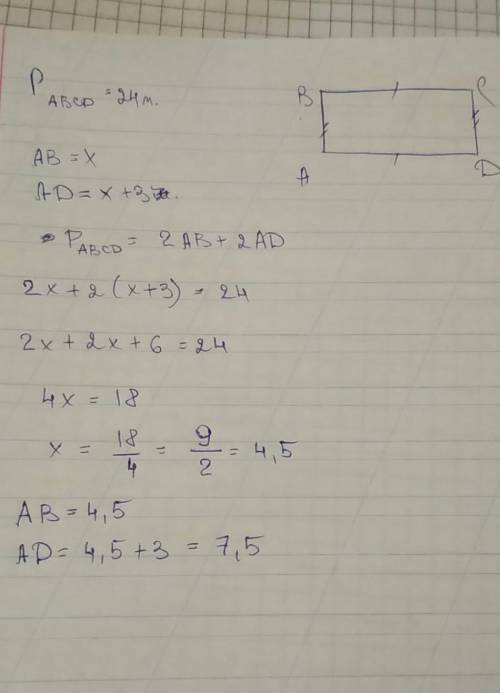 P ABCD = 24 м.
B C
A D
AB = x
AD = x + 3
P ABCD = 2AB + 2AD
2x + 2(x+3) = 24
2x + 2x + 6 = 24
4x = 18
x = 18/4 = 9/2 = 4,5
AB = 4,5
AD = 4,5 + 3 = 7,5